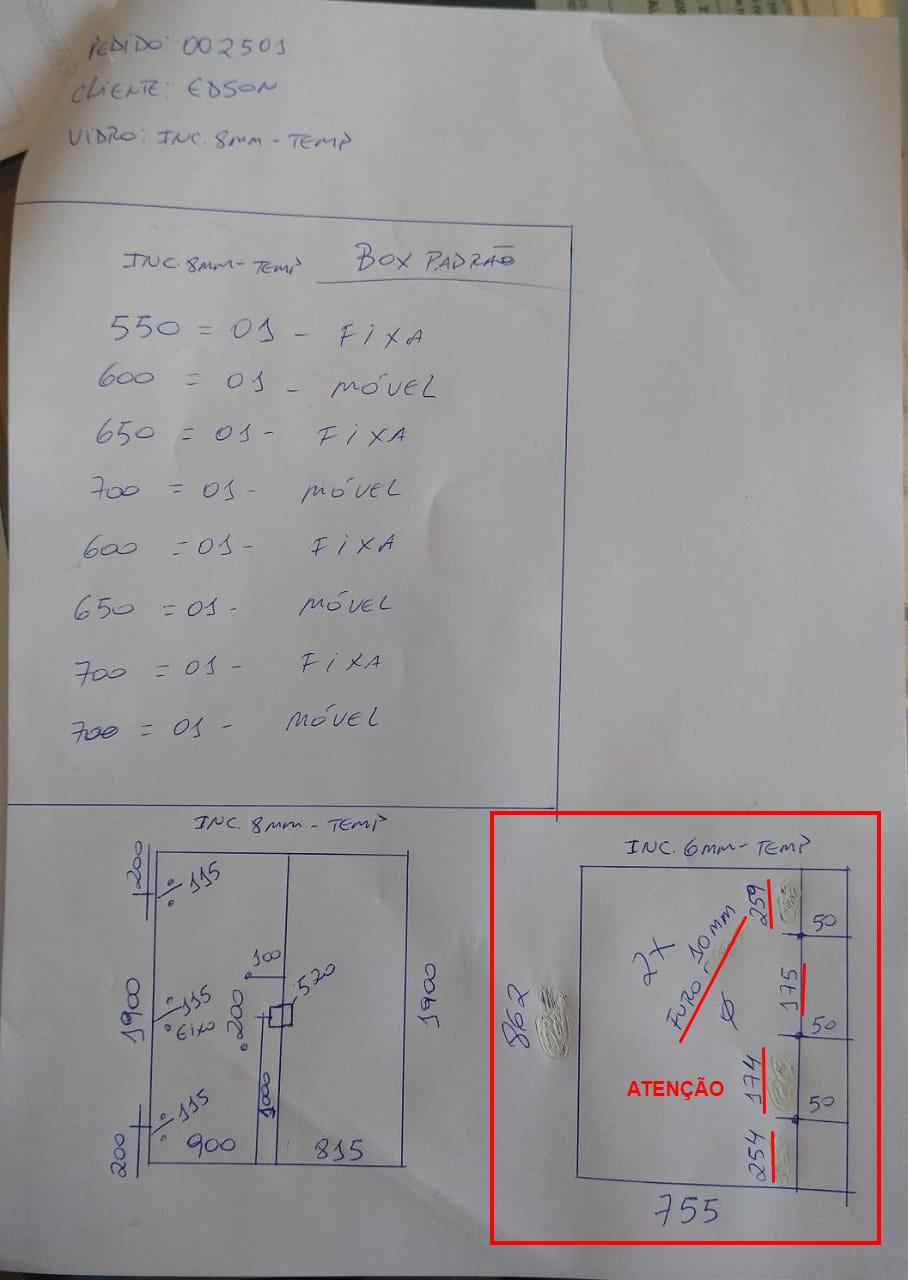 PEDIDO: 002501
CLIENTE: EDSON
VIDRO: INC. 8MM - TEMP
INC. 8MM - TEMP BOX PADRÃO
550 = 01 - FIXA
600 = 01 - MÓVEL
650 = 01 - FIXA
700 = 01 - MÓVEL
600 = 01 - FIXA
650 = 01 - MÓVEL
700 = 01 - FIXA
700 = 01 - MÓVEL
INC. 8MM - TEMP
200
115
1900
115
EIXO
200
115
900
100
200
520
1000
815
1900
INC. 6MM - TEMP
862
2X
FURO 10MM
Ø
259
50
175
50
ATENÇÃO
174
50
254
755